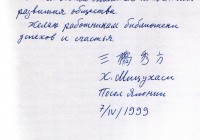 развития общества.
Желаю работникам библиотеки
успехов и счастья.
三橋秀方
Х. Мицухаси
Посол Японии
7/IV/1999